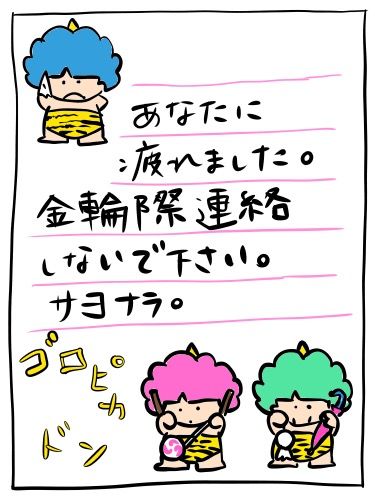 あなたに
疲れました。
金輪際連絡
しないで下さい。
サヨナラ。
ゴロピカ
ドン